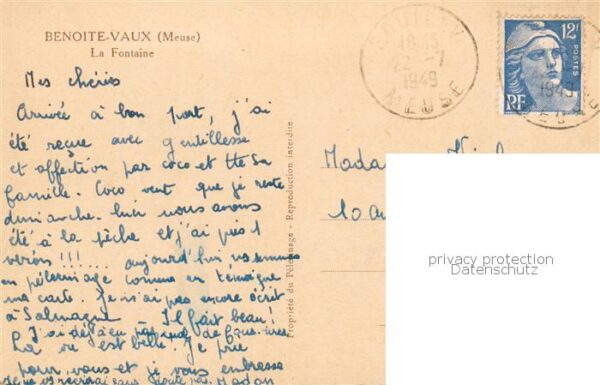 BENOITE-VAUX (Meuse)
La Fontaine
Mes chéries
Arrivée à bon port, j'ai
été reçue avec gentillesse
et affection par coco et tte sa
famille. Coco veut que je reste
dimanche. hier nous avons
été à la pêche et j'ai pris 1
véron !!! .... aujourd'hui ns sommes
en pélerinage comme en témoigne
ma carte. Je n'ai pas encore écrit
à Il fait beau!
J'ai déjà eu de
La vie est belle. Je prie
pour vous et je vous embrasse
Propriété du Pélerinage - Reproduction interdite
SOUILLY
18-45
1949
MEUSE
12F
POSTES
RF
1949
Madame
10
privacy protection
Datenschutz